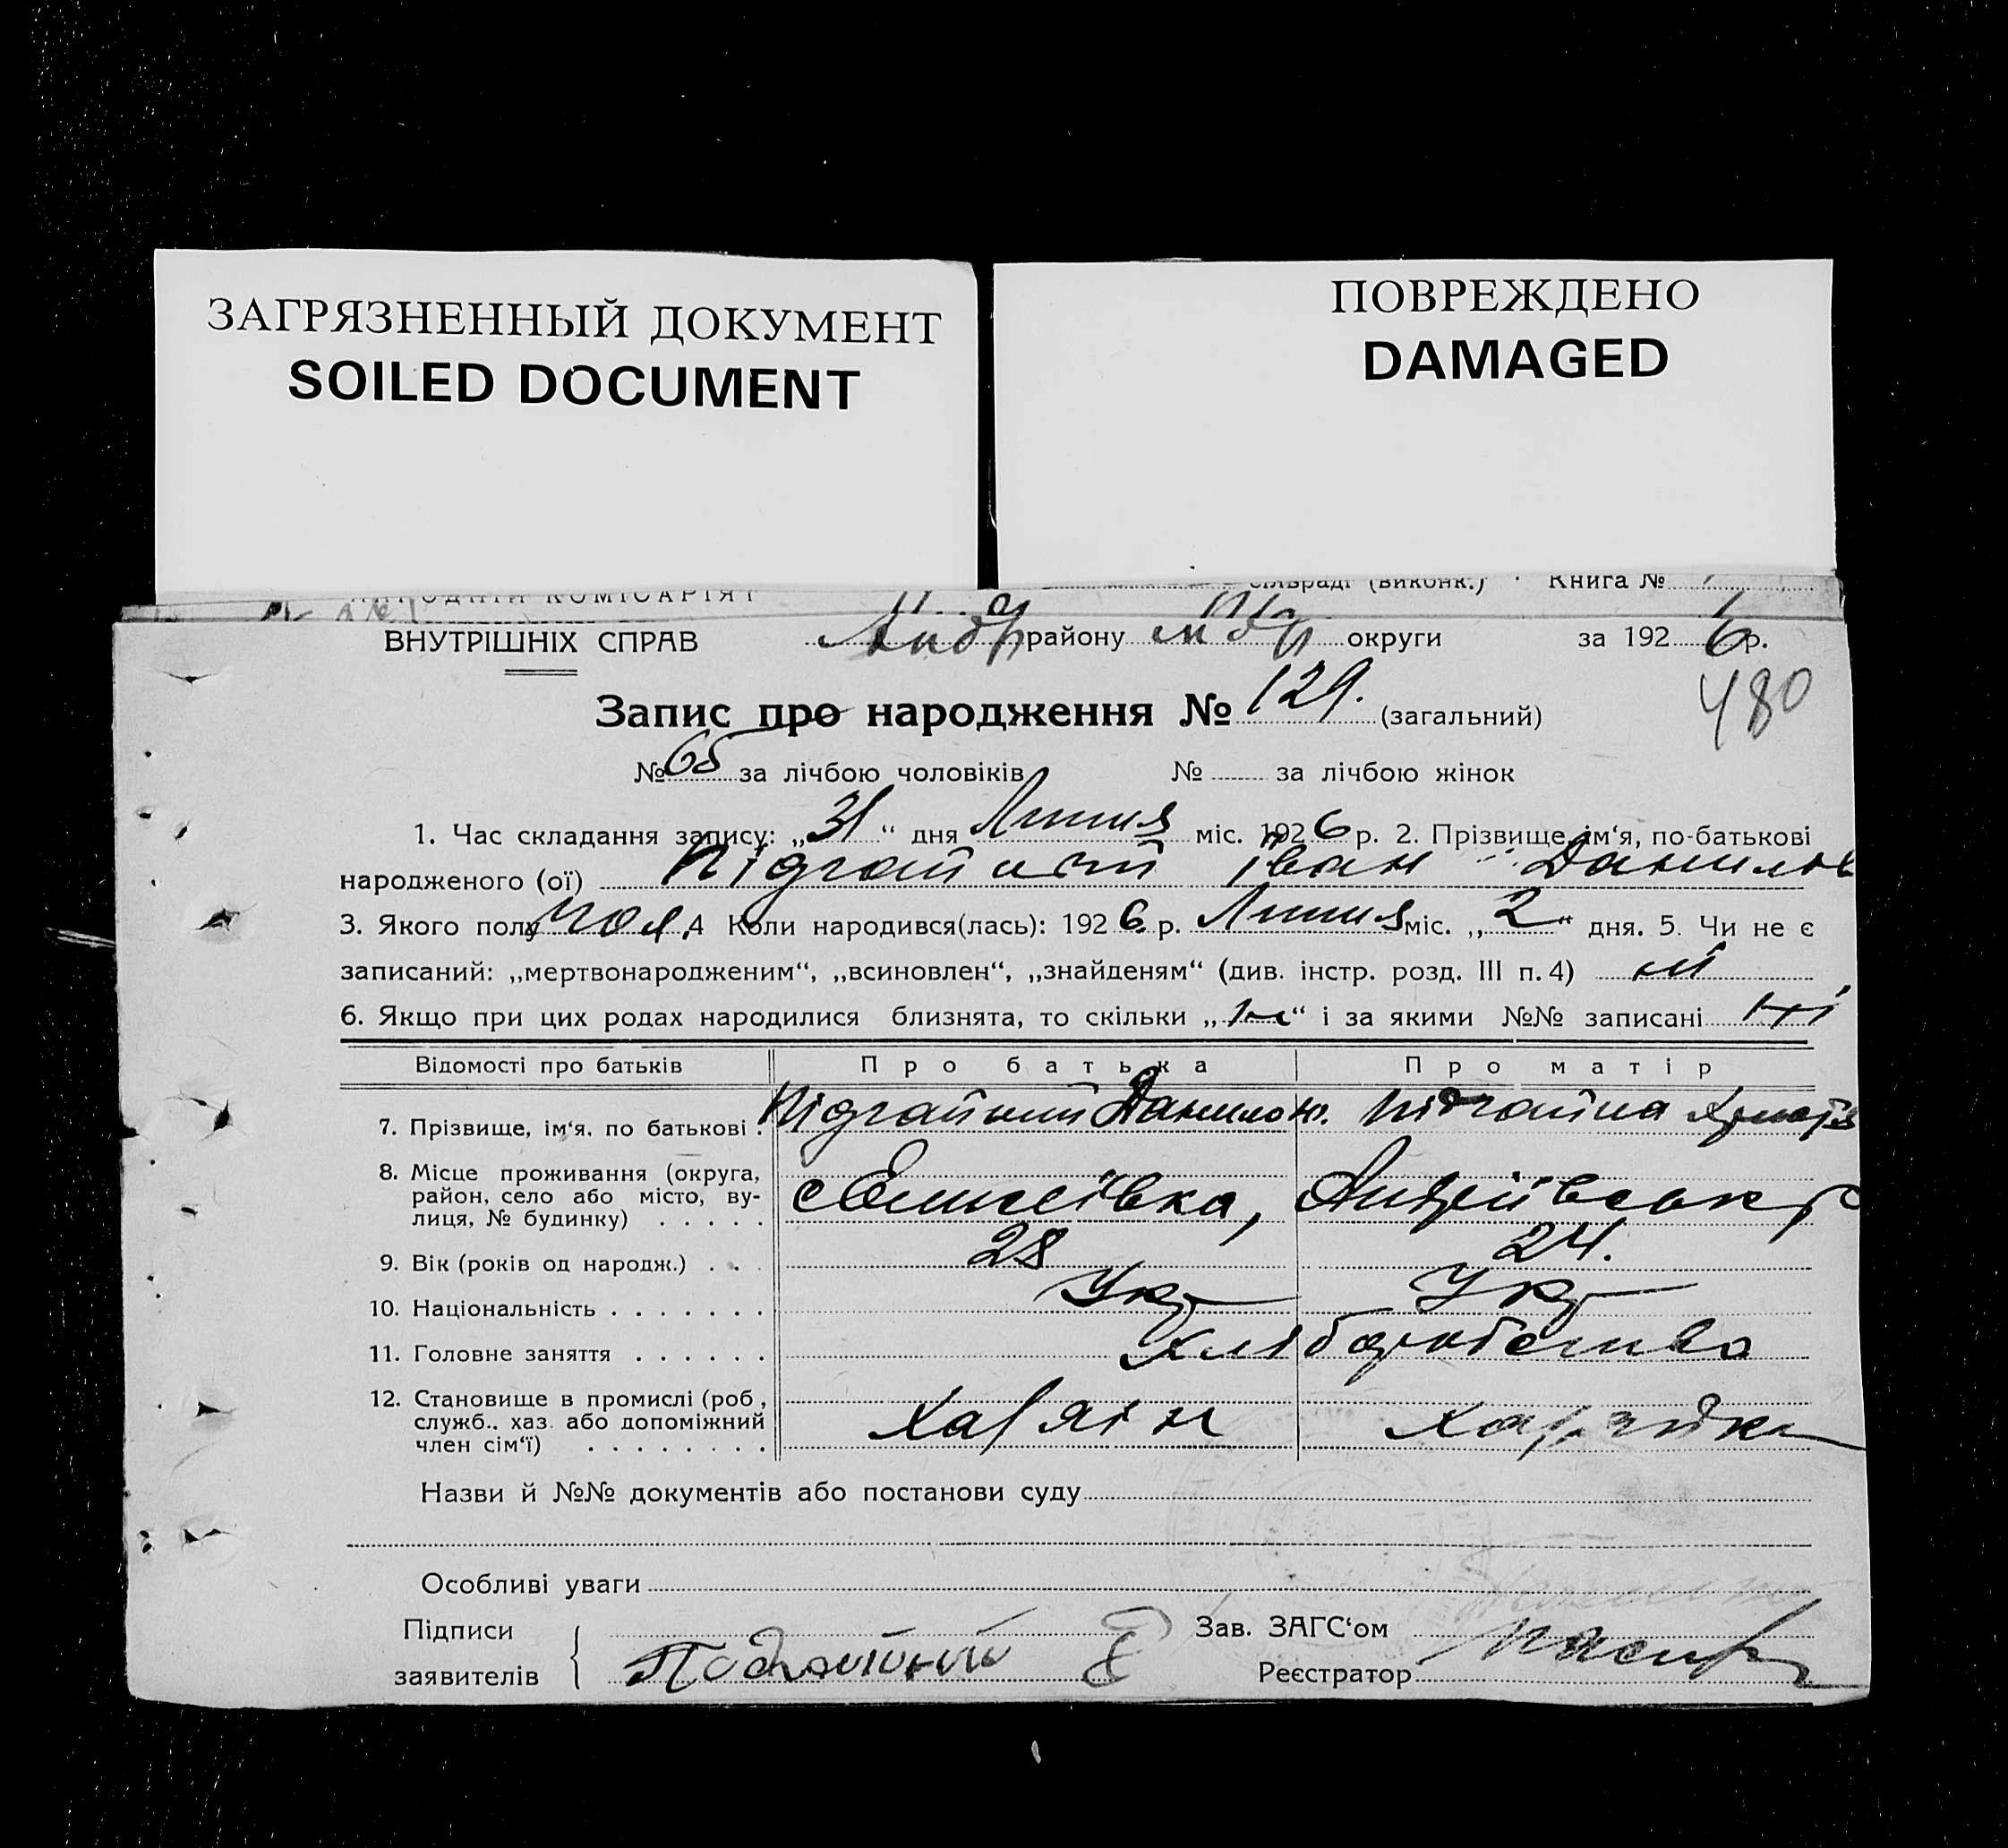 ЗАГРЯЗНЕННЫЙ ДОКУМЕНТ
SOILED DOCUMENT
ПОВРЕЖДЕНО
DAMAGED
НАРОДНІЙ КОМІСАРІЯТ сільраді (виконк.) Книга №
ВНУТРІШНІХ СПРАВ Андр району округи за 192 6 р.
480
Запис про народження № 129. (загальний)
№ 65 за лічбою чоловіків № за лічбою жінок
1. Час складання запису: „31“ дня Липня міс. 1926 р. 2. Прізвище, ім‘я, по-батькові
народженого (ої) Підгайний Іван Данилов
3. Якого полу чол. 4 Коли народився(лась): 1926 р. Липня міс. „2“ дня. 5. Чи не є
записаний: „мертвонародженим“, „всиновлен“, „знайденям“ (див. інстр. розд. III п. 4) ні
6. Якщо при цих родах народилися близнята, то скільки „ні“ і за якими №№ записані ні
Відомості про батьків Про батька Про матір
7. Прізвище, ім‘я, по батькові . Підгайний Данило Підгайна
8. Місце проживання (округа,
район, село або місто, ву-
лиця, № будинку) . . . . . с Єлисеївка, Андріївськ
9. Вік (років од народж.) . . . 28 24.
10. Національність . . . . . . . Укр Укр
11. Головне заняття . . . . . . Хліборобство
12. Становище в промислі (роб.,
служб., хаз. або допоміжний
член сім‘ї) . . . . . . . . Хазяїн Хазяйка
Назви й №№ документів або постанови суду
Особливі уваги
Підписи
заявителів { Подгайний
Зав. ЗАГС‘ом
Реєстратор